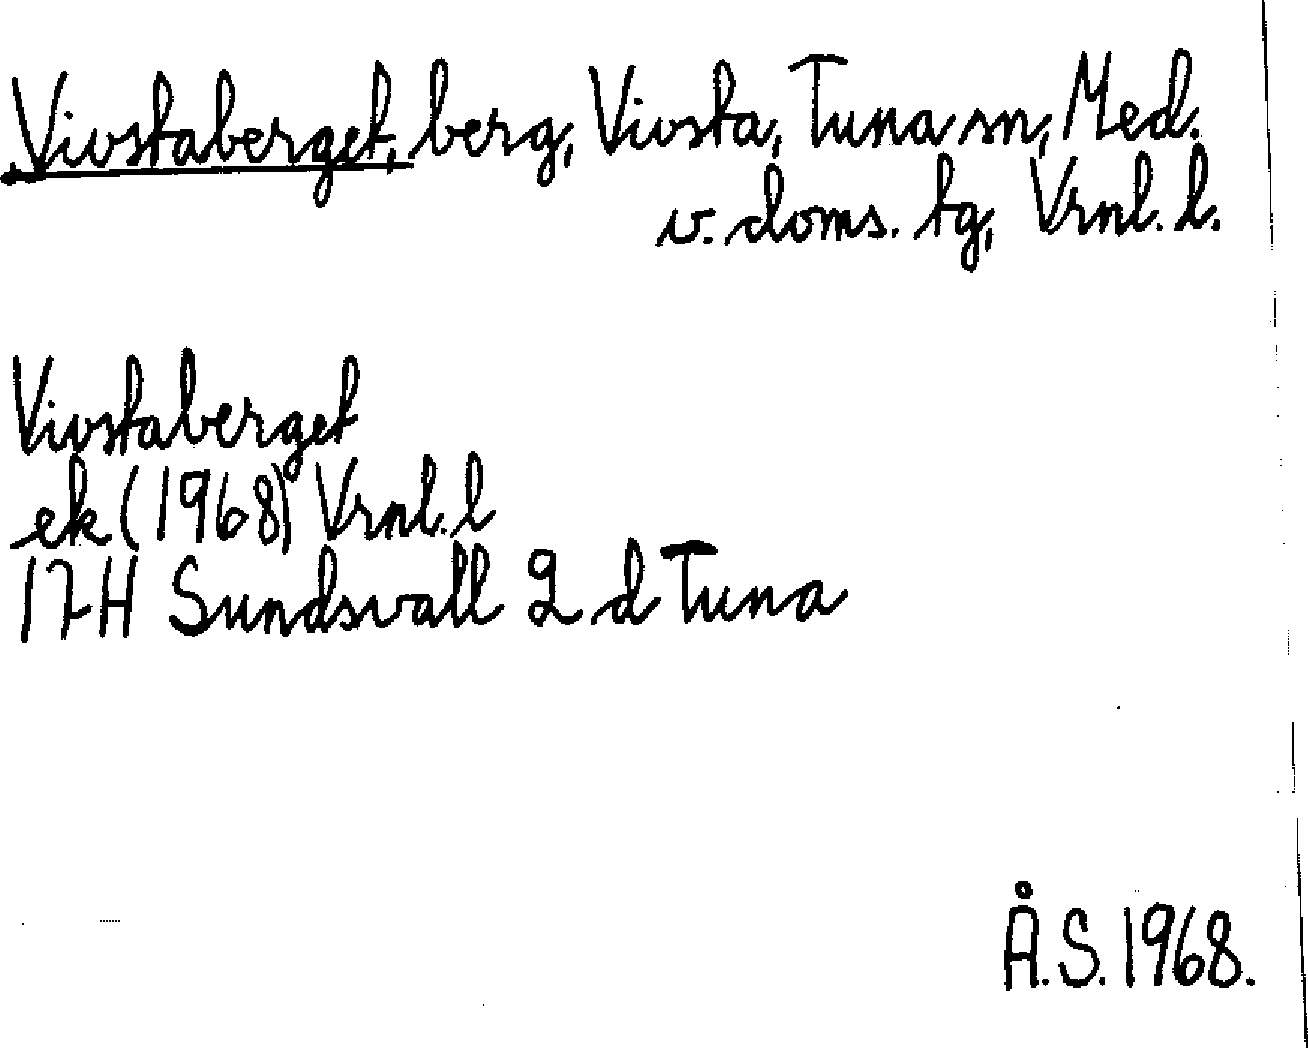 Vivstaberget, berg, Vivsta, Tuna sn, Med.
v. doms. tg, Vrnl. l.
Vivstaberget
ek (1968) Vrnl. l
17H Sundsvall 2 d Tuna
Å.S. 1968.